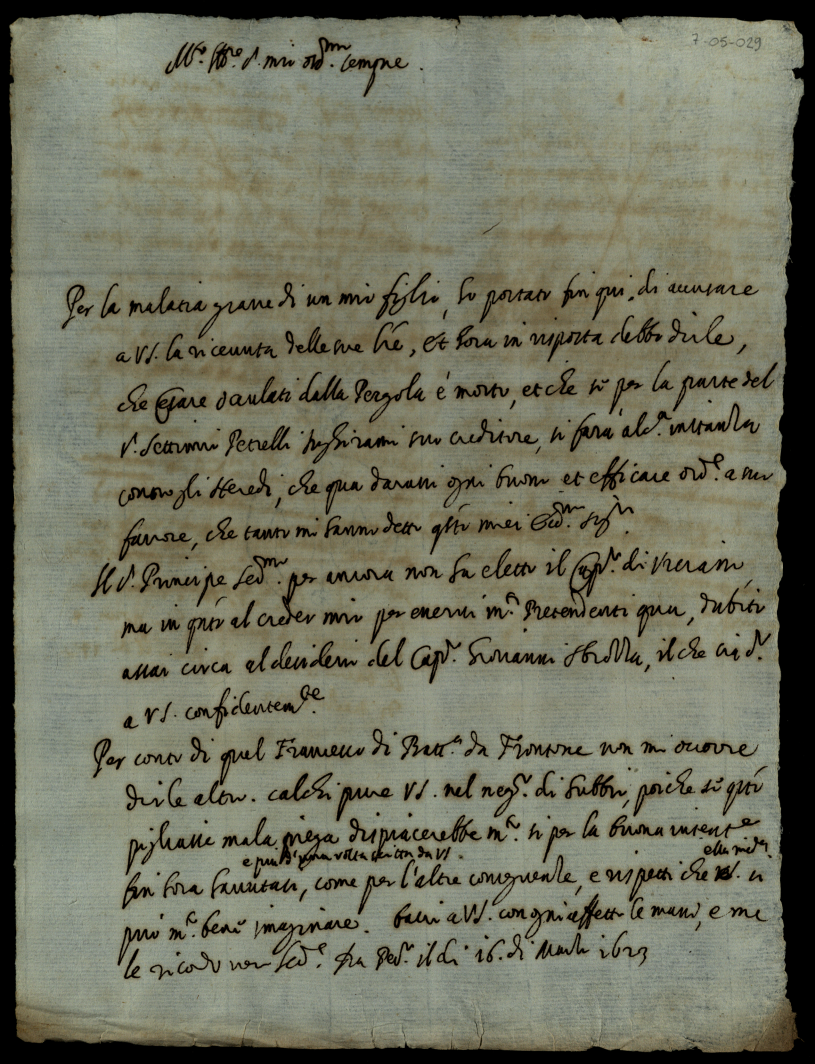 7-05-029
M.to Ill.re S. mio oss.mo sempre.
Per la malatia grave di un mio figlio, ho portato fin qui di accusare
a VS. la ricevuta delle sue l're, et hora in risposta debbo dirle,
che Cesare Paulati dalla Pergola é morto, et che se per la parte del
S. Settimio Petrelli suo creditore, si fará alc.a instanza
contro gli Heredi, che qua darassi ogni buono et efficace ord.e a suo
favore, che tanto mi hanno detto q'sti miei
Il S. Principe Ser.mo per ancora non ha eletto il Cap.o di
ma in q'nto al creder mio per esservi m.ti Pretendenti qua, dubito
assai circa al desiderio del Cap.o Giovanni, il che sia d.o
a VS. confidentem.te
Per conto di quel Francesco di Batt.a da Frontone non mi occorre
dirle altro. calchi pure VS. nel neg.o di Gubbio, poiche se q'sto
pigliasse mala piega dispiacerebbe m.to si per la buona intent.e
e piu di una volta scritta da VS. ella med.a
fin hora havutasi, come per l'altre conseguenze, e rispetti che si
puó m.to bene imaginare. bacio a VS. con ogni affetto le mani, e me
le ricordo ser.re Da Pes.o il di 16. di 1623